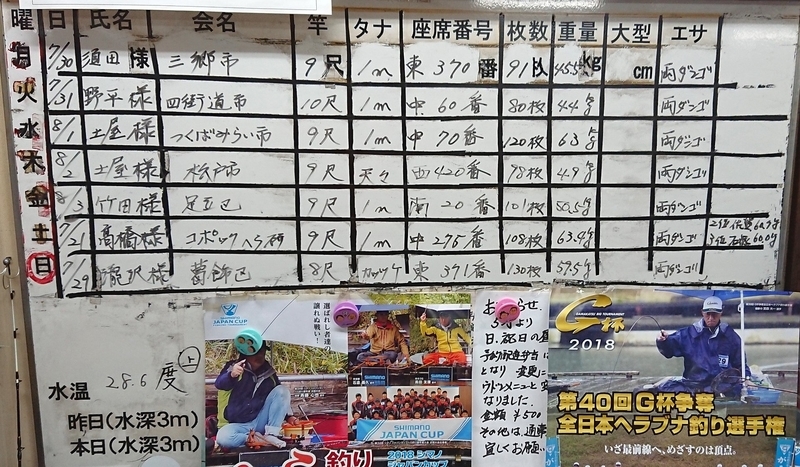 曜 日 氏名 会名 竿 タナ 座席番号 枚数 重量 大型 エサ
日 7/30 須田様 三郷市 9尺 1m 東370番 91枚 45.5kg cm 両ダンゴ
火 7/31 野平様 四街道市 10尺 1m 中60番 80枚 44kg 両ダンゴ
水 8/1 土屋様 つくばみらい市 9尺 1m 中70番 120枚 63kg 両ダンゴ
木 8/2 土屋様 松戸市 9尺 天々 西420番 98枚 49kg 両ダンゴ
金 8/3 竹田様 足立区 9尺 1m 南20番 101枚 50.5kg 両ダンゴ
土 7/21 髙橋様 コポックヘラ研 9尺 1m 中276番 108枚 63.9kg 両ダンゴ
日 7/29 瀧沢様 葛飾区 8尺 カッツケ 東391番 130枚 57.5kg 両ダンゴ
水温 28.6度 上
昨日(水深3m)
本日(水深3m)
SHIMANO
JAPAN CUP
選ばれし者達の
譲れぬ戦い!
釣り
SHIMANO
JAPAN CUP
2018 シマノ
ジャパンカップ
おしらせ
5月より
日
となり 変更に
なりました
金額 ¥500
その他は通常
宜しくお願い
G杯
2018
第40回G杯争奪
全日本ヘラブナ釣り選手権
いざ最前線へ、めざすのは頂点。